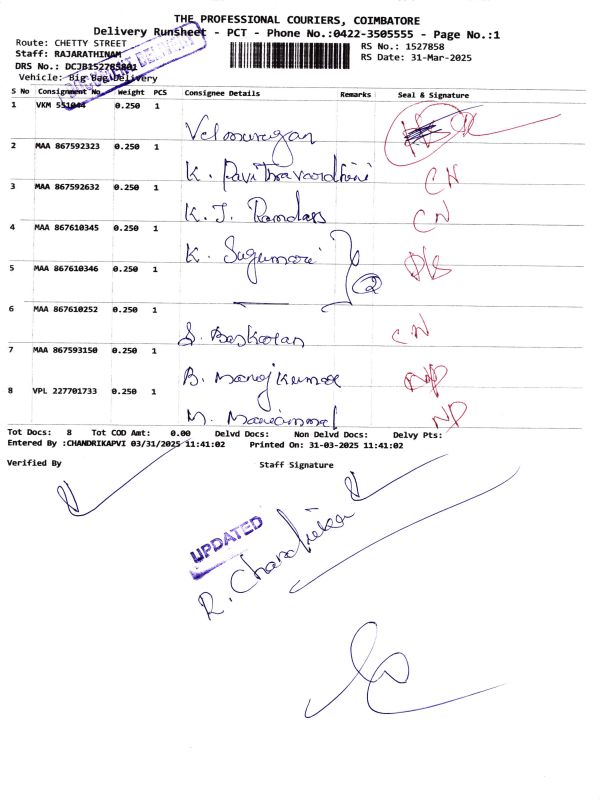 THE PROFESSIONAL COURIERS, COIMBATORE
Delivery Runsheet - PCT - Phone No.:0422-3505555 - Page No.:1
Route: CHETTY STREET
RS No.: 1527858
Staff: RAJARATHINAM
RS Date: 31-Mar-2025
DRS No.: DCJB152785801
Vehicle: Big Bag Delivery
DELIVERY
S No Consignment No. Weight PCS Consignee Details Remarks Seal & Signature
1 VKM 551044 0.250 1
Velmurugan
2 MAA 867592323 0.250 1
K. Pavithravardhini CN
3 MAA 867592632 0.250 1
K. J. Ramdass CN
4 MAA 867610345 0.250 1
K. Sugumari
5 MAA 867610346 0.250 1
2
6 MAA 867610252 0.250 1
S. Baskaran CN
7 MAA 867593150 0.250 1
B. Manojkumar NP
8 VPL 227701733 0.250 1
M. Mariammal NP
Tot Docs: 8 Tot COD Amt: 0.00 Delvd Docs: Non Delvd Docs: Delvy Pts:
Entered By :CHANDRIKAPVI 03/31/2025 11:41:02 Printed On: 31-03-2025 11:41:02
Verified By Staff Signature
UPDATED
R. Chandrika